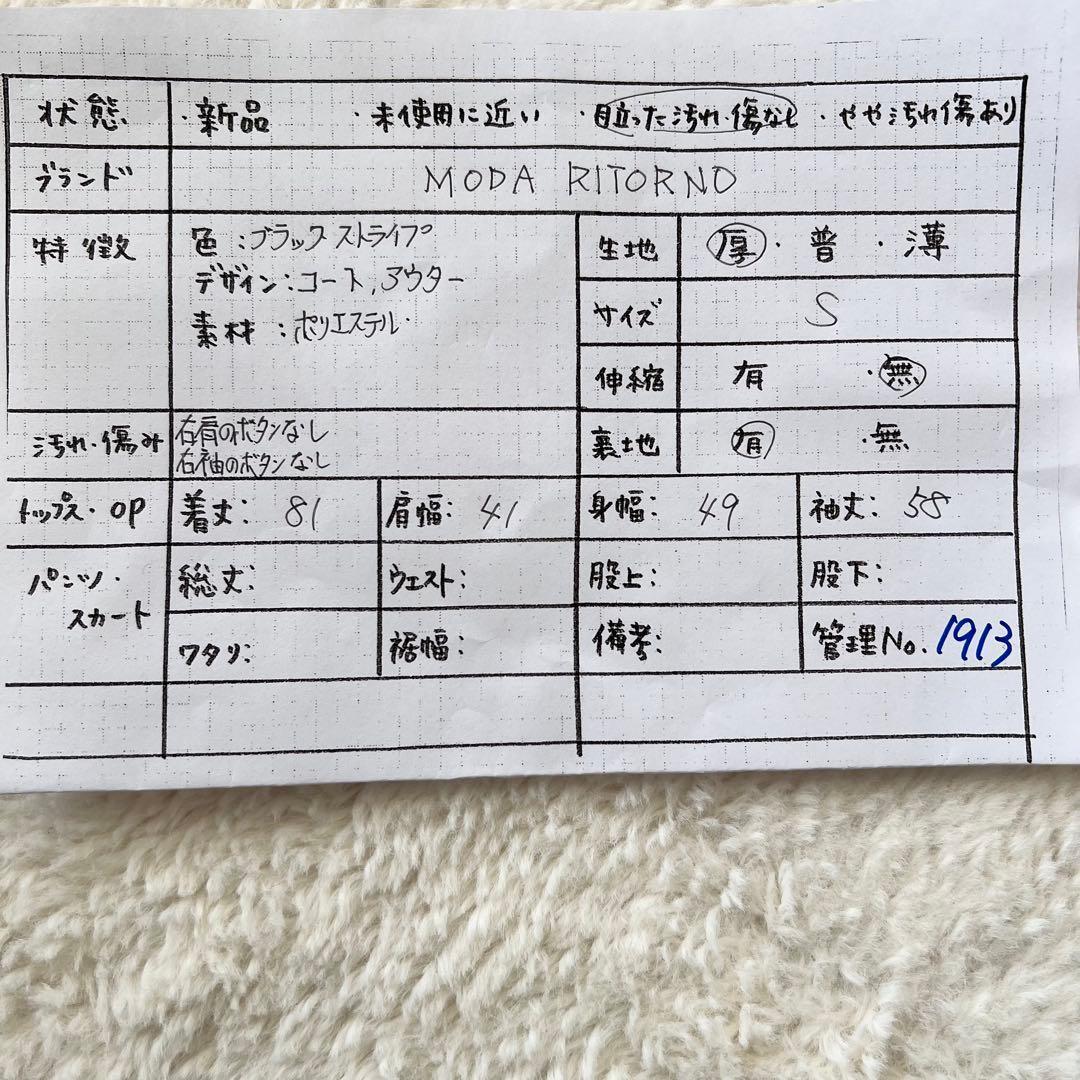 状態 ・新品 ・未使用に近い ・目立った汚れ・傷なし ・やや汚れ傷あり
ブランド MODA RITORNO
特徴
色：ブラックストライプ
デザイン：コート,アウター
素材：ポリエステル
生地 厚・普・薄
サイズ S
伸縮 有 ・無
汚れ・傷み
右肩のボタンなし
右袖のボタンなし
裏地 有 ・無
トップス・OP 着丈: 81 肩幅: 41 身幅: 49 袖丈: 58
パンツ・
スカート
総丈: ウエスト: 股上: 股下:
ワタリ: 裾幅: 備考: 管理No. 1913